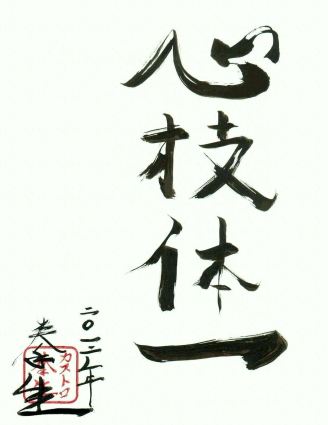 心技体一
二〇一二年
生
カストロ